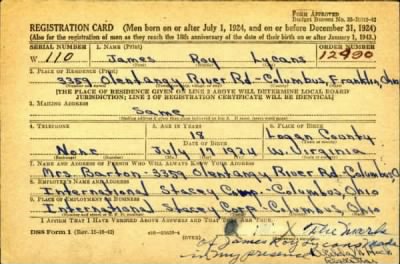 FORM APPROVED
Budget Bureau No. 33-R012-42
REGISTRATION CARD (Men born on or after July 1, 1924, and on or before December 31, 1924)
(Also for the registration of men as they reach the 18th anniversary of the date of their birth on or after January 1, 1943.)
SERIAL NUMBER 1. NAME (Print) ORDER NUMBER
W 110 James Roy Lycans 12490
2. PLACE OF RESIDENCE (Print)
3359 Olentangy River Rd.-Columbus, Franklin, Ohio
[THE PLACE OF RESIDENCE GIVEN ON LINE 2 ABOVE WILL DETERMINE LOCAL BOARD
JURISDICTION; LINE 2 OF REGISTRATION CERTIFICATE WILL BE IDENTICAL]
3. MAILING ADDRESS
Same
4. TELEPHONE 5. AGE IN YEARS 6. PLACE OF BIRTH
Logan County
DATE OF BIRTH
None July 1, 1924 W. Virginia
7. NAME AND ADDRESS OF PERSON WHO WILL ALWAYS KNOW YOUR ADDRESS
Mrs. Barton-3359 Olentangy River Rd-Columbus, O
8. EMPLOYER'S NAME AND ADDRESS
International Stacey Corp-Columbus, Ohio
9. PLACE OF EMPLOYMENT OR BUSINESS
International Stacey Corp-Columbus, Ohio
I AFFIRM THAT I HAVE VERIFIED ABOVE ANSWERS AND THAT THEY ARE TRUE.
DSS Form 1 (Rev. 11-16-42)
X The mark
of James Roy Lycans made
in my presence